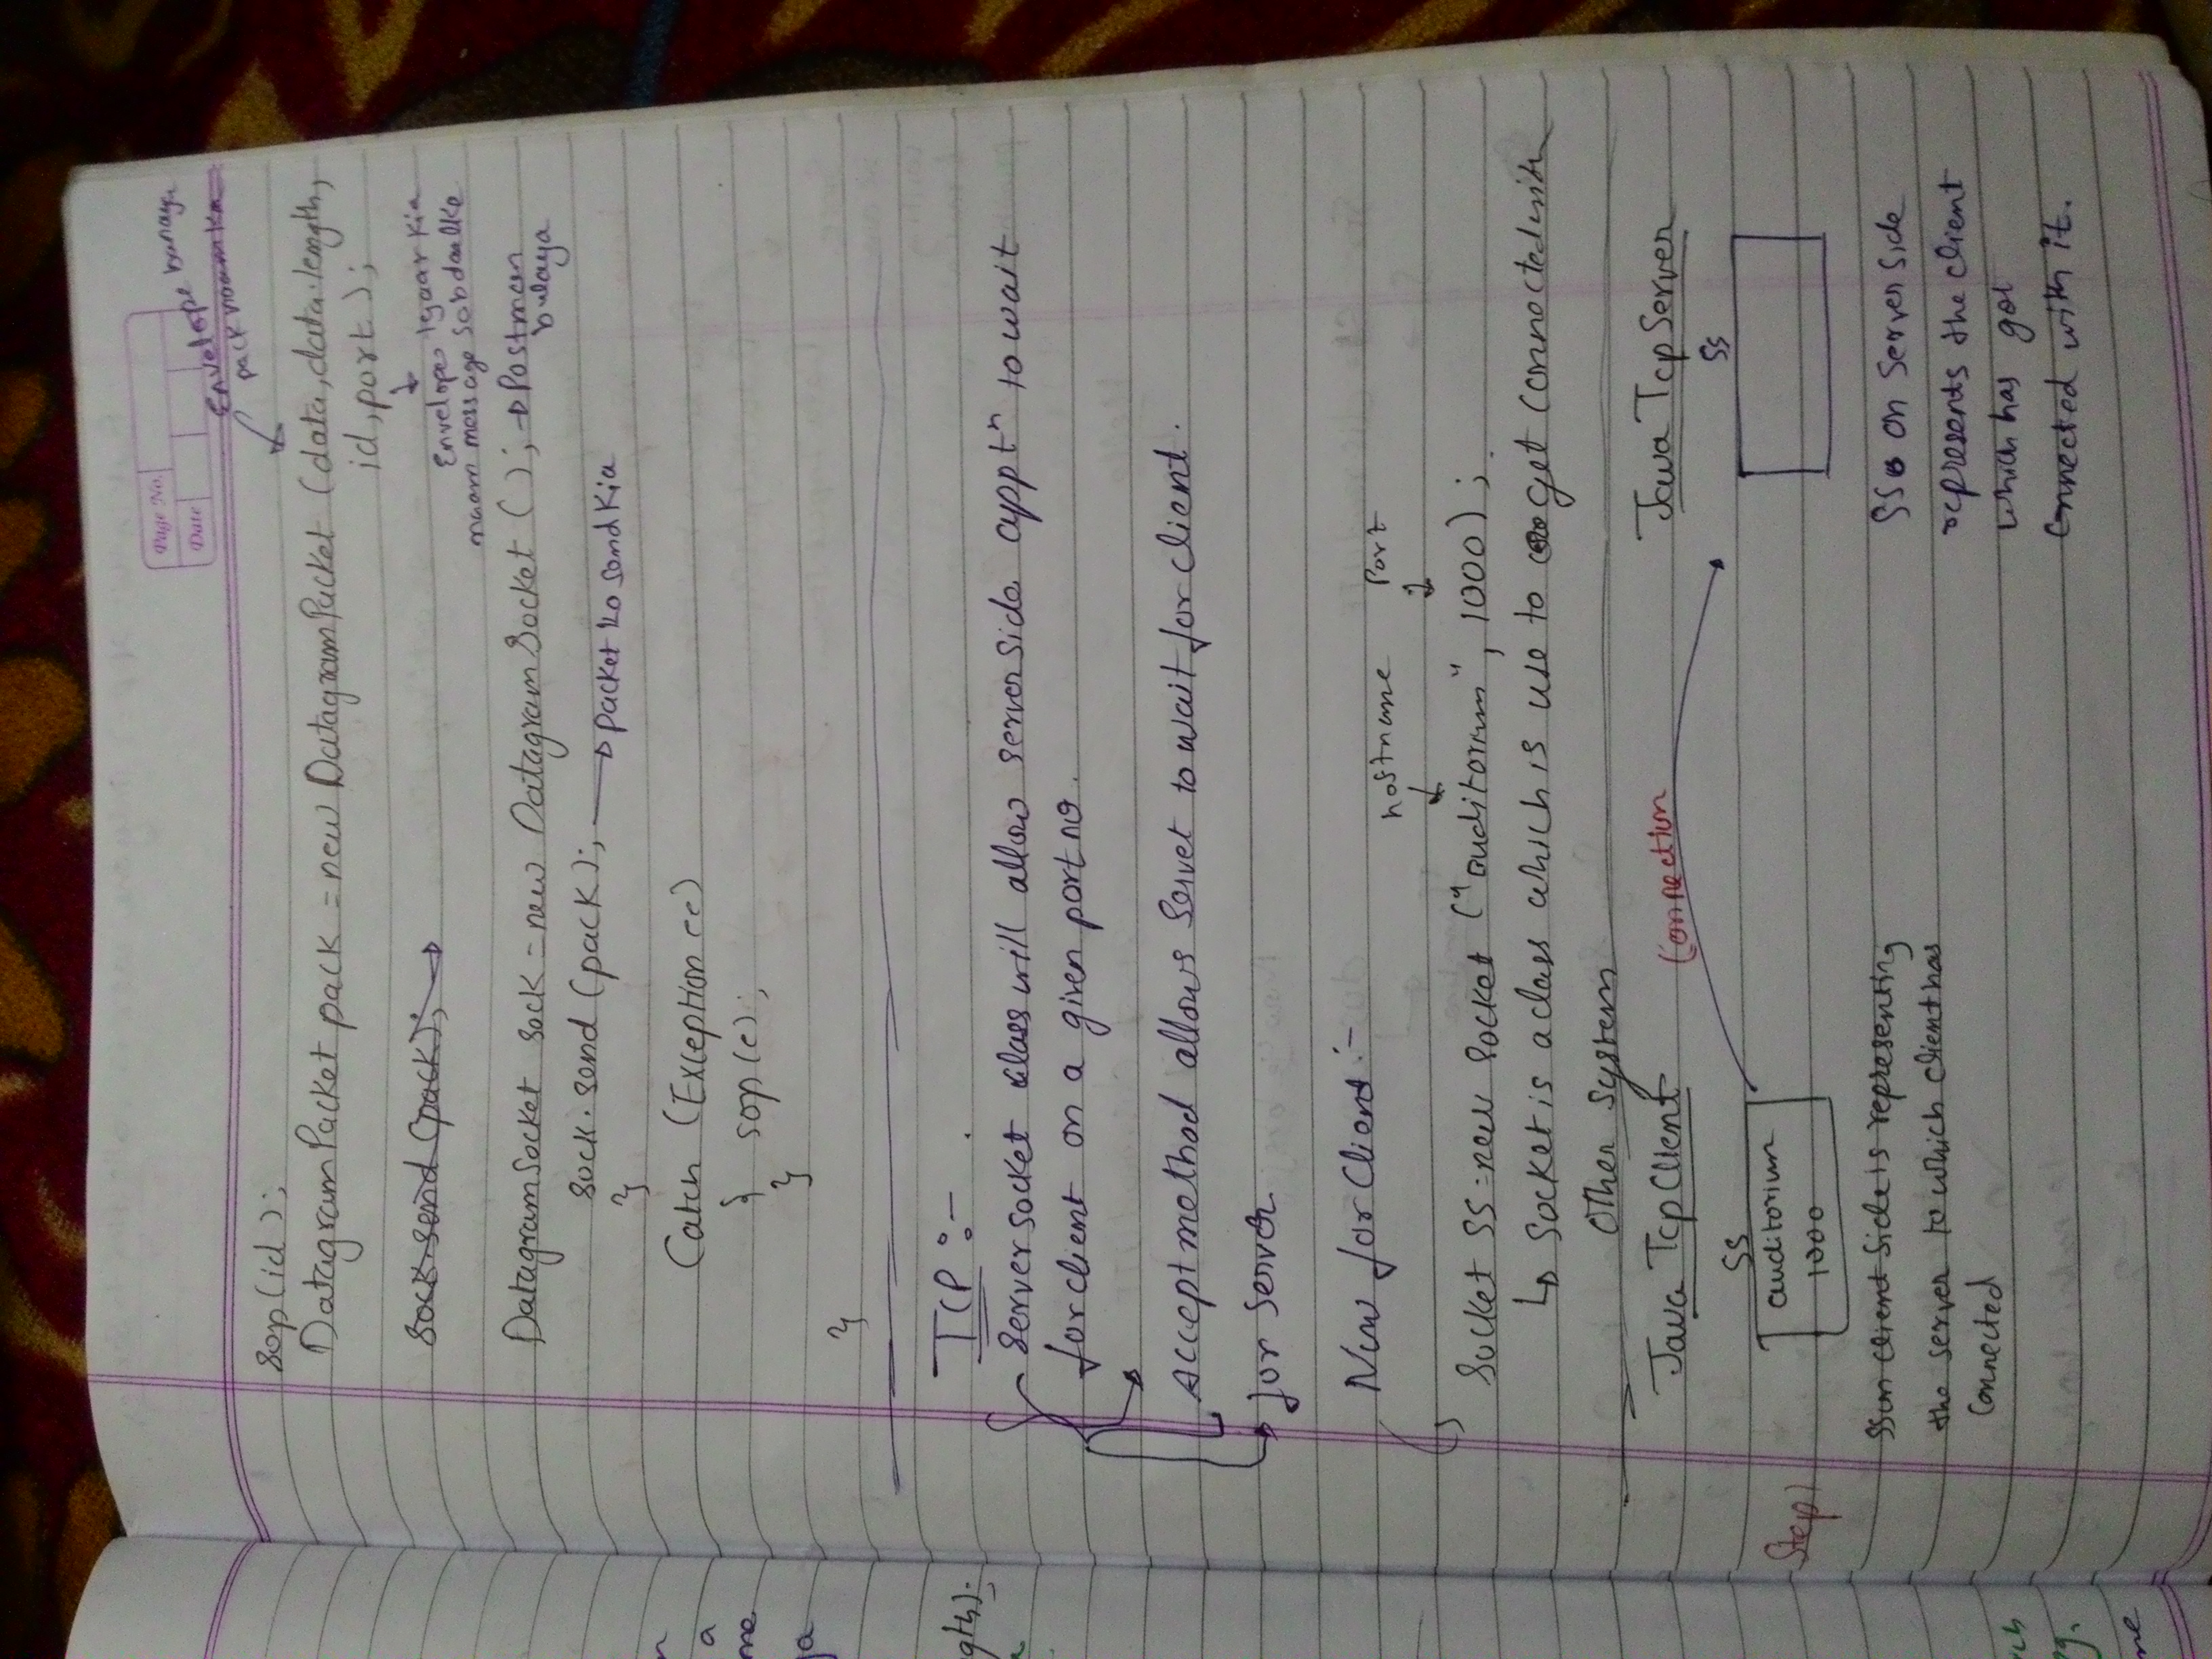 Page No.
Date
Envelope banaya
pack naam ka
Sop(id);
DatagramPacket pack = new DatagramPacket (data, data.length,
id, port);
Sock.send (pack);
Envelope tyaar kia
naam message sab daalke
DatagramSocket sock = new DatagramSocket ( ); → Postman
bulaya
sock.send (pack); → packet ko send kia
}
Catch (Exception e)
{ sop(e);
}
}
TCP :-
Server socket class will allow server side appt^n to wait
for client on a given port no.
Accept method allows Server to wait for client.
for server
Now for Client :-
hostname Port
Socket SS = new Socket ("auditorium", 1000);
↳ Socket is a class which is use to get connected with
Other system
Java Tcp Client Connection Java Tcp Server
SS SS
auditorium
Step 1
1000
SS on client side is representing
the server to which client has
Connected
SS on Server side
represents the client
which has got
Connected with it.
gth);
a
me
ya